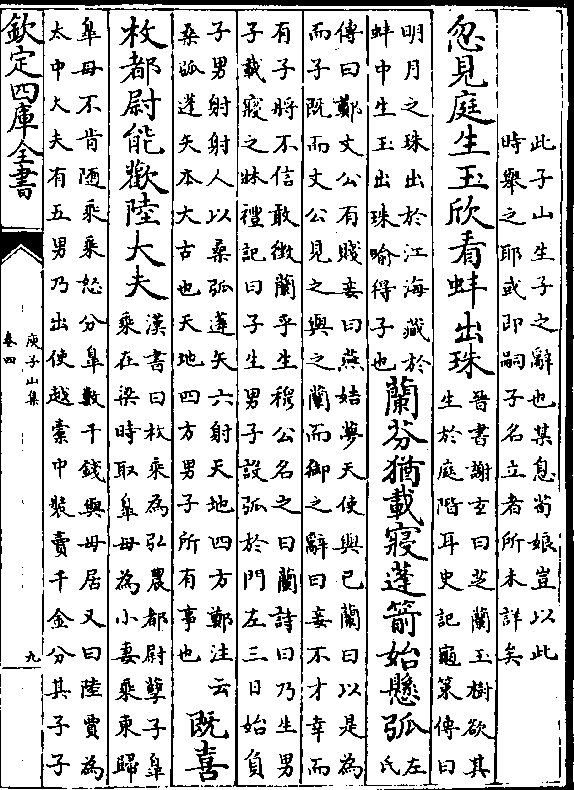 此子山生子之辭也某息荀娘豈以此
時舉之耶或即嗣子名立者所未詳矣
忽見庭生玉欣看蚌出珠
晉書謝玄曰芝蘭玉樹欲其
生於庭階耳史記龜策傳曰
明月之珠出於江海藏於
蚌中生玉出珠喻得子也
蘭芬猶載寢蓬箭始懸弧
左
氏
傳曰鄭文公有賤妾曰燕姞夢天使與已蘭曰以是為
而子既而文公見之與之蘭而御之辭曰妾不才幸而
有子將不信敢徵蘭乎生穆公名之曰蘭詩曰乃生男
子載寢之牀禮記曰子生男子設弧於門左三日始負
子男射射人以桑弧蓬矢六射天地四方鄭注云
桑弧蓬矢本大古也天地四方男子所有事也
既喜
枚都尉能歡陸大夫
漢書曰枚乘為弘農都尉孽子臯
乘在梁時取臯母為小妻乘東歸
臯母不肯隨乘乘怒分臯數千錢與母居又曰陸賈為
太中大夫有五男乃出使越槖中裝賣千金分其子子
欽定四庫全書
庾子山集
卷四
九